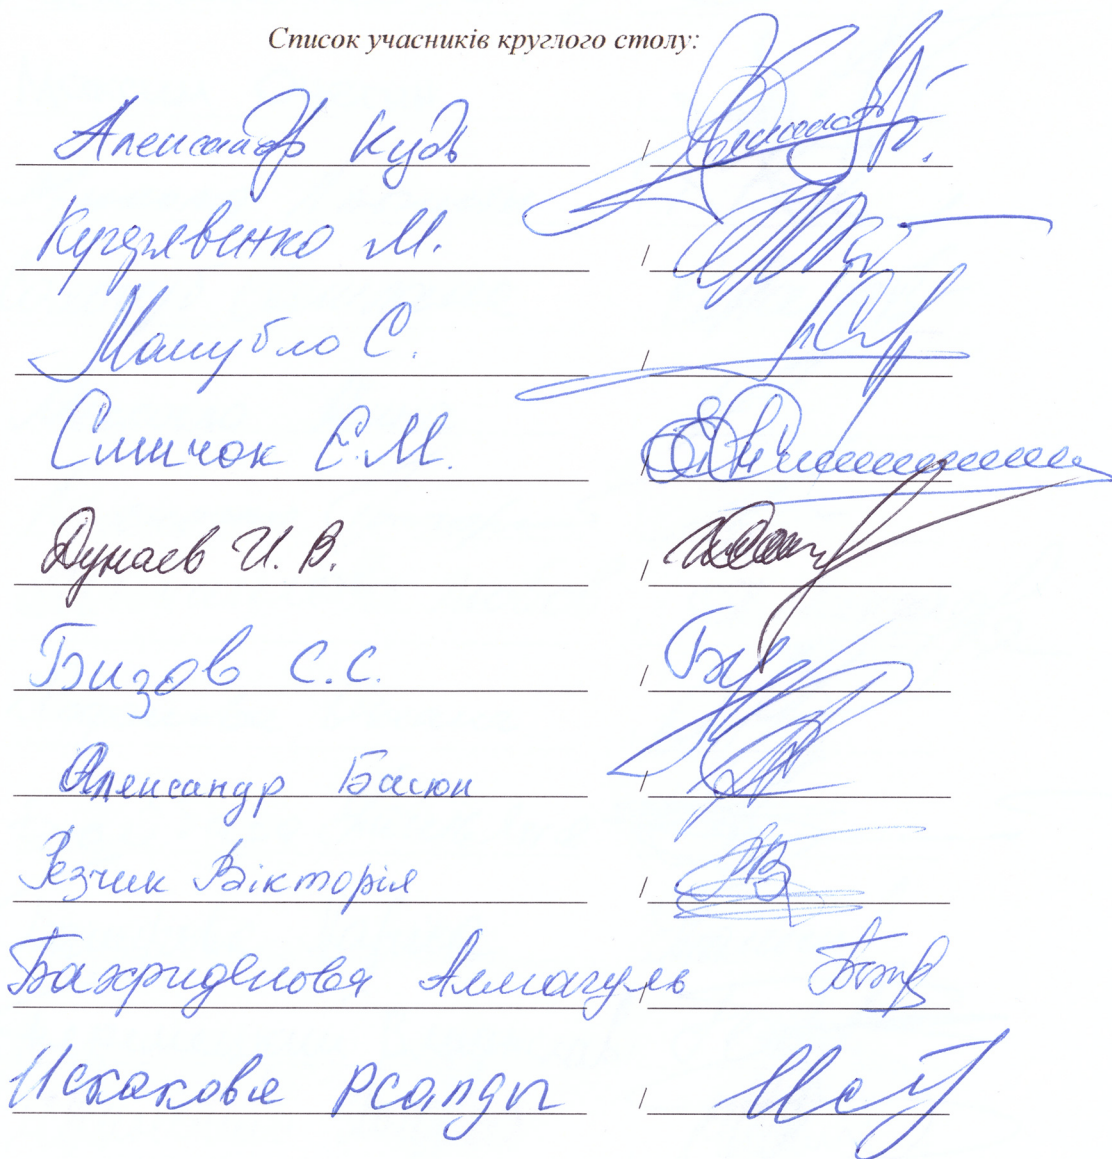 Список учасників круглого столу:
Александр Кудь /
Кучерявенко М. /
С. /
Смичок Е.М. /
Дунаев И. В. /
Бизов С.С. /
Александр Басюк /
Резчик Вікторія /
Бахриденова Алмагуль /
Искакова /